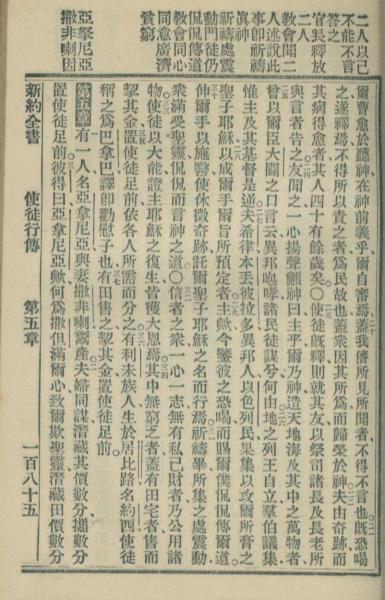 二人以己
不能不言
答之
官長釋放
二人
教會聞二
人述說此
事卽祈禱
眞神
祈禱處震
動門徒仍
侃侃傳道
教會同心
同意廣濟
貧窮
亞拏尼亞
撒非喇因
爾曹愈於聽神在神前義乎爾自審焉蓋我儕所見所聞者不得不言也旣恐喝
之遂釋焉不得所以責之者爲民故也蓋衆因其所爲而歸榮於神夫由奇跡而
其病得愈者其人四十有餘歲矣〇使徒旣釋則就其友以祭司諸長及長老所
與言者告之友聞之一心揚聲籲神曰主乎爾乃神造天地海及其中之萬物者
曾以爾臣大闢之口言云異邦咆哮諸民徒謀兮何由地之列王自立羣伯議集
惟主及其基督是逆夫希律本丟彼拉多異邦人以色列民果集以攻爾所膏之
聖子耶穌以成爾手爾旨所預定者主歟今鑒彼之恐喝而賜爾僕侃侃傳爾道
伸爾手以施醫使休徵奇跡託爾聖子耶穌之名而行焉祈禱畢所集之處震動
衆滿受聖靈侃侃而言神之道〇信者之衆一心一志無有私己財者乃公用諸
物使徒以大能證主耶穌之復生皆獲大恩焉其中無窮乏者蓋有田宅者售而
挈其金置使徒足前依各人所需而分之有利未族人生於居比路名約西使徒
稱之爲巴拿巴譯卽勸慰子也有田售之挈其金置使徒足前
第五章有一人名亞拿尼亞與妻撒非喇鬻產夫婦同謀潛藏其價數分攜數分
置使徒足前彼得曰亞拿尼亞歟何爲撒但滿爾心致爾欺聖靈潛藏田價數分
新約全書 使徒行傳 第五章 一百八十五